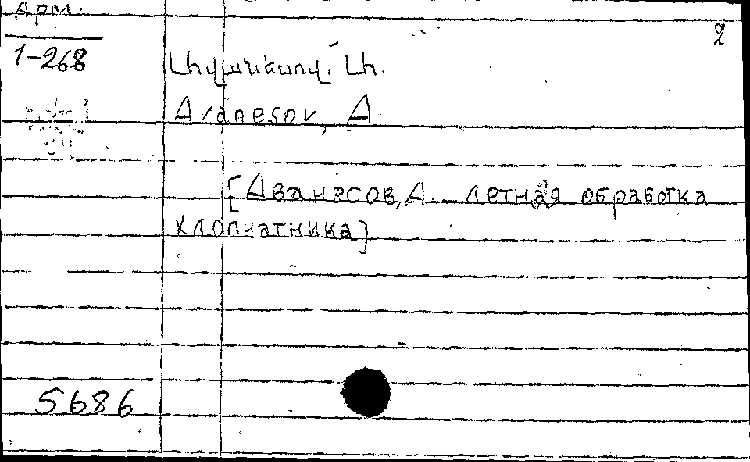 Арм.
2
1-268
Ավանեսով, Ա.
Avanesov, A
[Аванесов, А. Летняя обработка
хлопчатника]
5686